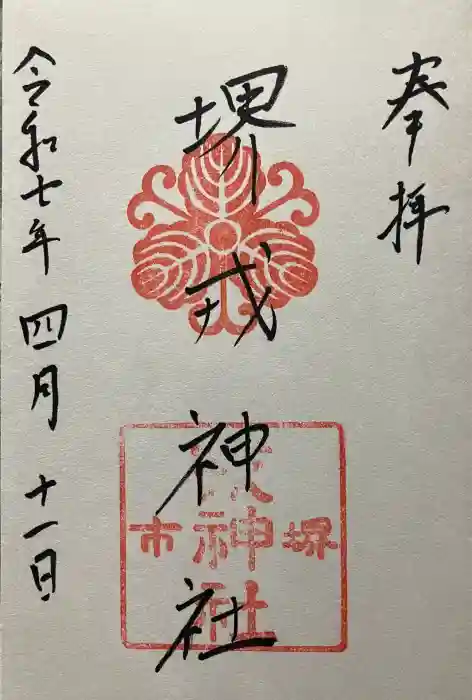 奉拝
堺戎神社
堺市
戎神社
令和七年 四月 十一日